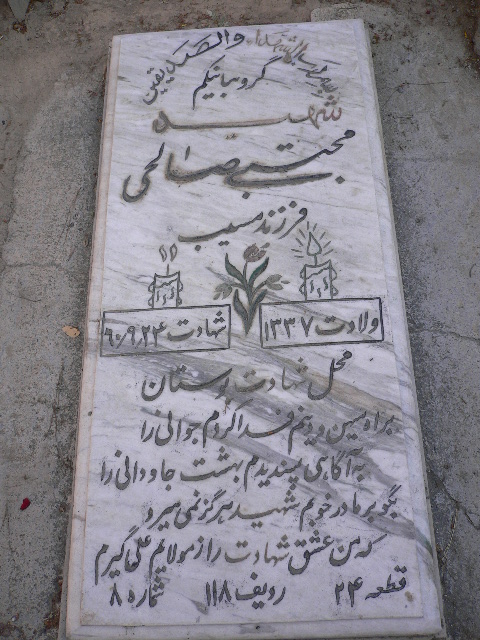 بسم رب الشهداء والصدیقین
گروهبانیکم
شهید
مجتبی صالحی
فرزند مسیب
ولادت ۱۳۳۷
شهادت ۶۰/۹/۲۴
محل شهادت بوستان
براه میهن و دینم فدا کردم جوانی را
به آگاهی پسندیدم بهشت جاودانی را
بگو بر مادر خوبم شهید هرگز نمی میرد
که من عشق شهادت را ز مولایم علی گیرم
قطعه ۲۴ ردیف ۱۱۸ شماره ۸